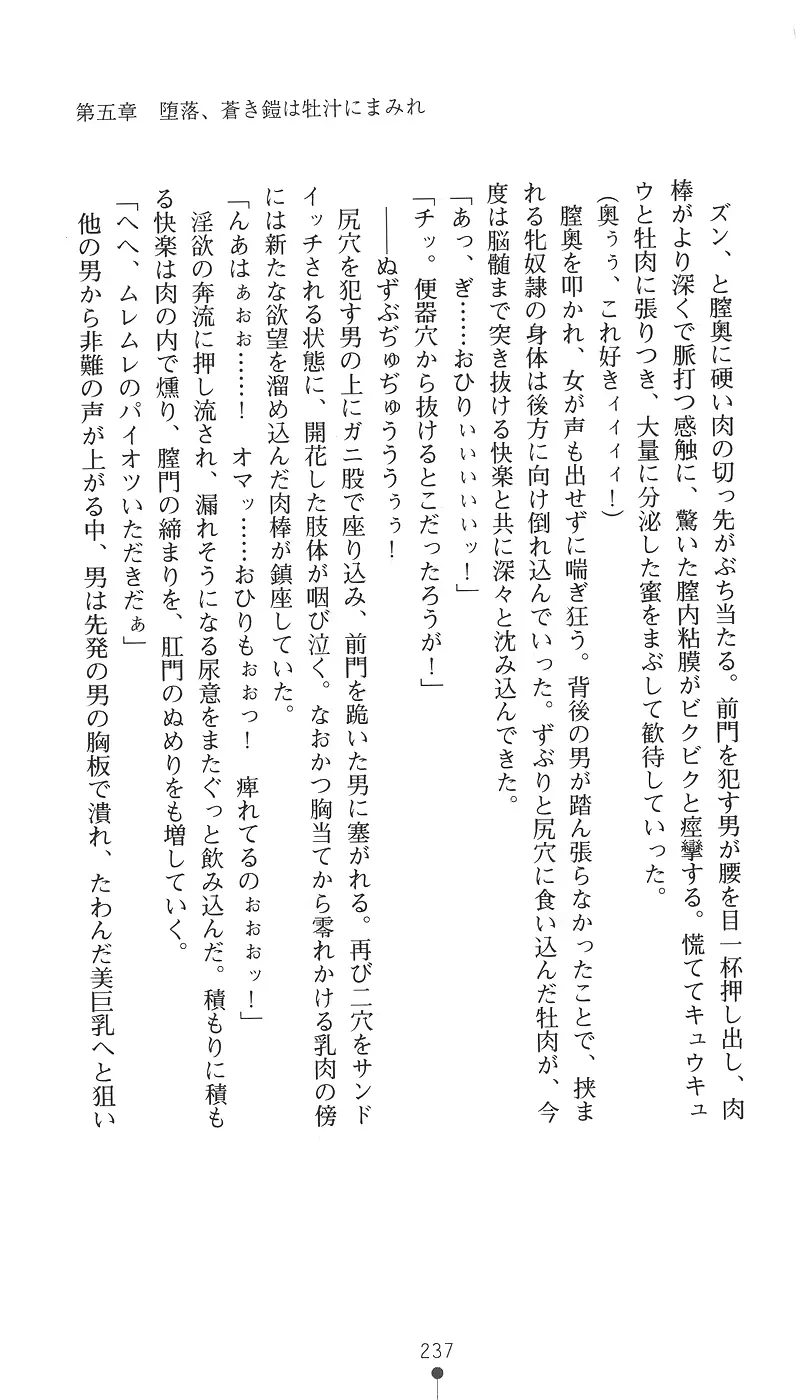 第五章　堕落、蒼き鎧は牡汁にまみれ
　ズン、と膣奥に硬い肉の切っ先がぶち当たる。前門を犯す男が腰を目一杯押し出し、肉
棒がより深くで脈打つ感触に、驚いた膣内粘膜がビクビクと痙攣する。慌ててキュウキュ
ウと牡肉に張りつき、大量に分泌した蜜をまぶして歓待していった。
（奥ぅぅ、これ好きィィィィ！）
　膣奥を叩かれ、女が声も出せずに喘ぎ狂う。背後の男が踏ん張らなかったことで、挟ま
れる牝奴隷の身体は後方に向け倒れ込んでいった。ずぶりと尻穴に食い込んだ牡肉が、今
度は脳髄まで突き抜ける快楽と共に深々と沈み込んできた。
「あっ、ぎ……おひりぃぃぃぃぃッ！」
「チッ。便器穴から抜けるとこだったろうが！」
　――ぬずぶぢゅぢゅうううぅぅ！
　尻穴を犯す男の上にガニ股で座り込み、前門を跪いた男に塞がれる。再び二穴をサンド
イッチされる状態に、開花した肢体が咽び泣く。なおかつ胸当てから零れかける乳肉の傍
には新たな欲望を溜め込んだ肉棒が鎮座していた。
「んあはぁぉぉ……！　オマッ……おひりもぉぉっ！　痺れてるのぉぉぉッ！」
　淫欲の奔流に押し流され、漏れそうになる尿意をまたぐっと飲み込んだ。積もりに積も
る快楽は肉の内で燻り、膣門の締まりを、肛門のぬめりをも増していく。
「へへ、ムレムレのパイオツいただきだぁ」
　他の男から非難の声が上がる中、男は先発の男の胸板で潰れ、たわんだ美巨乳へと狙い
237